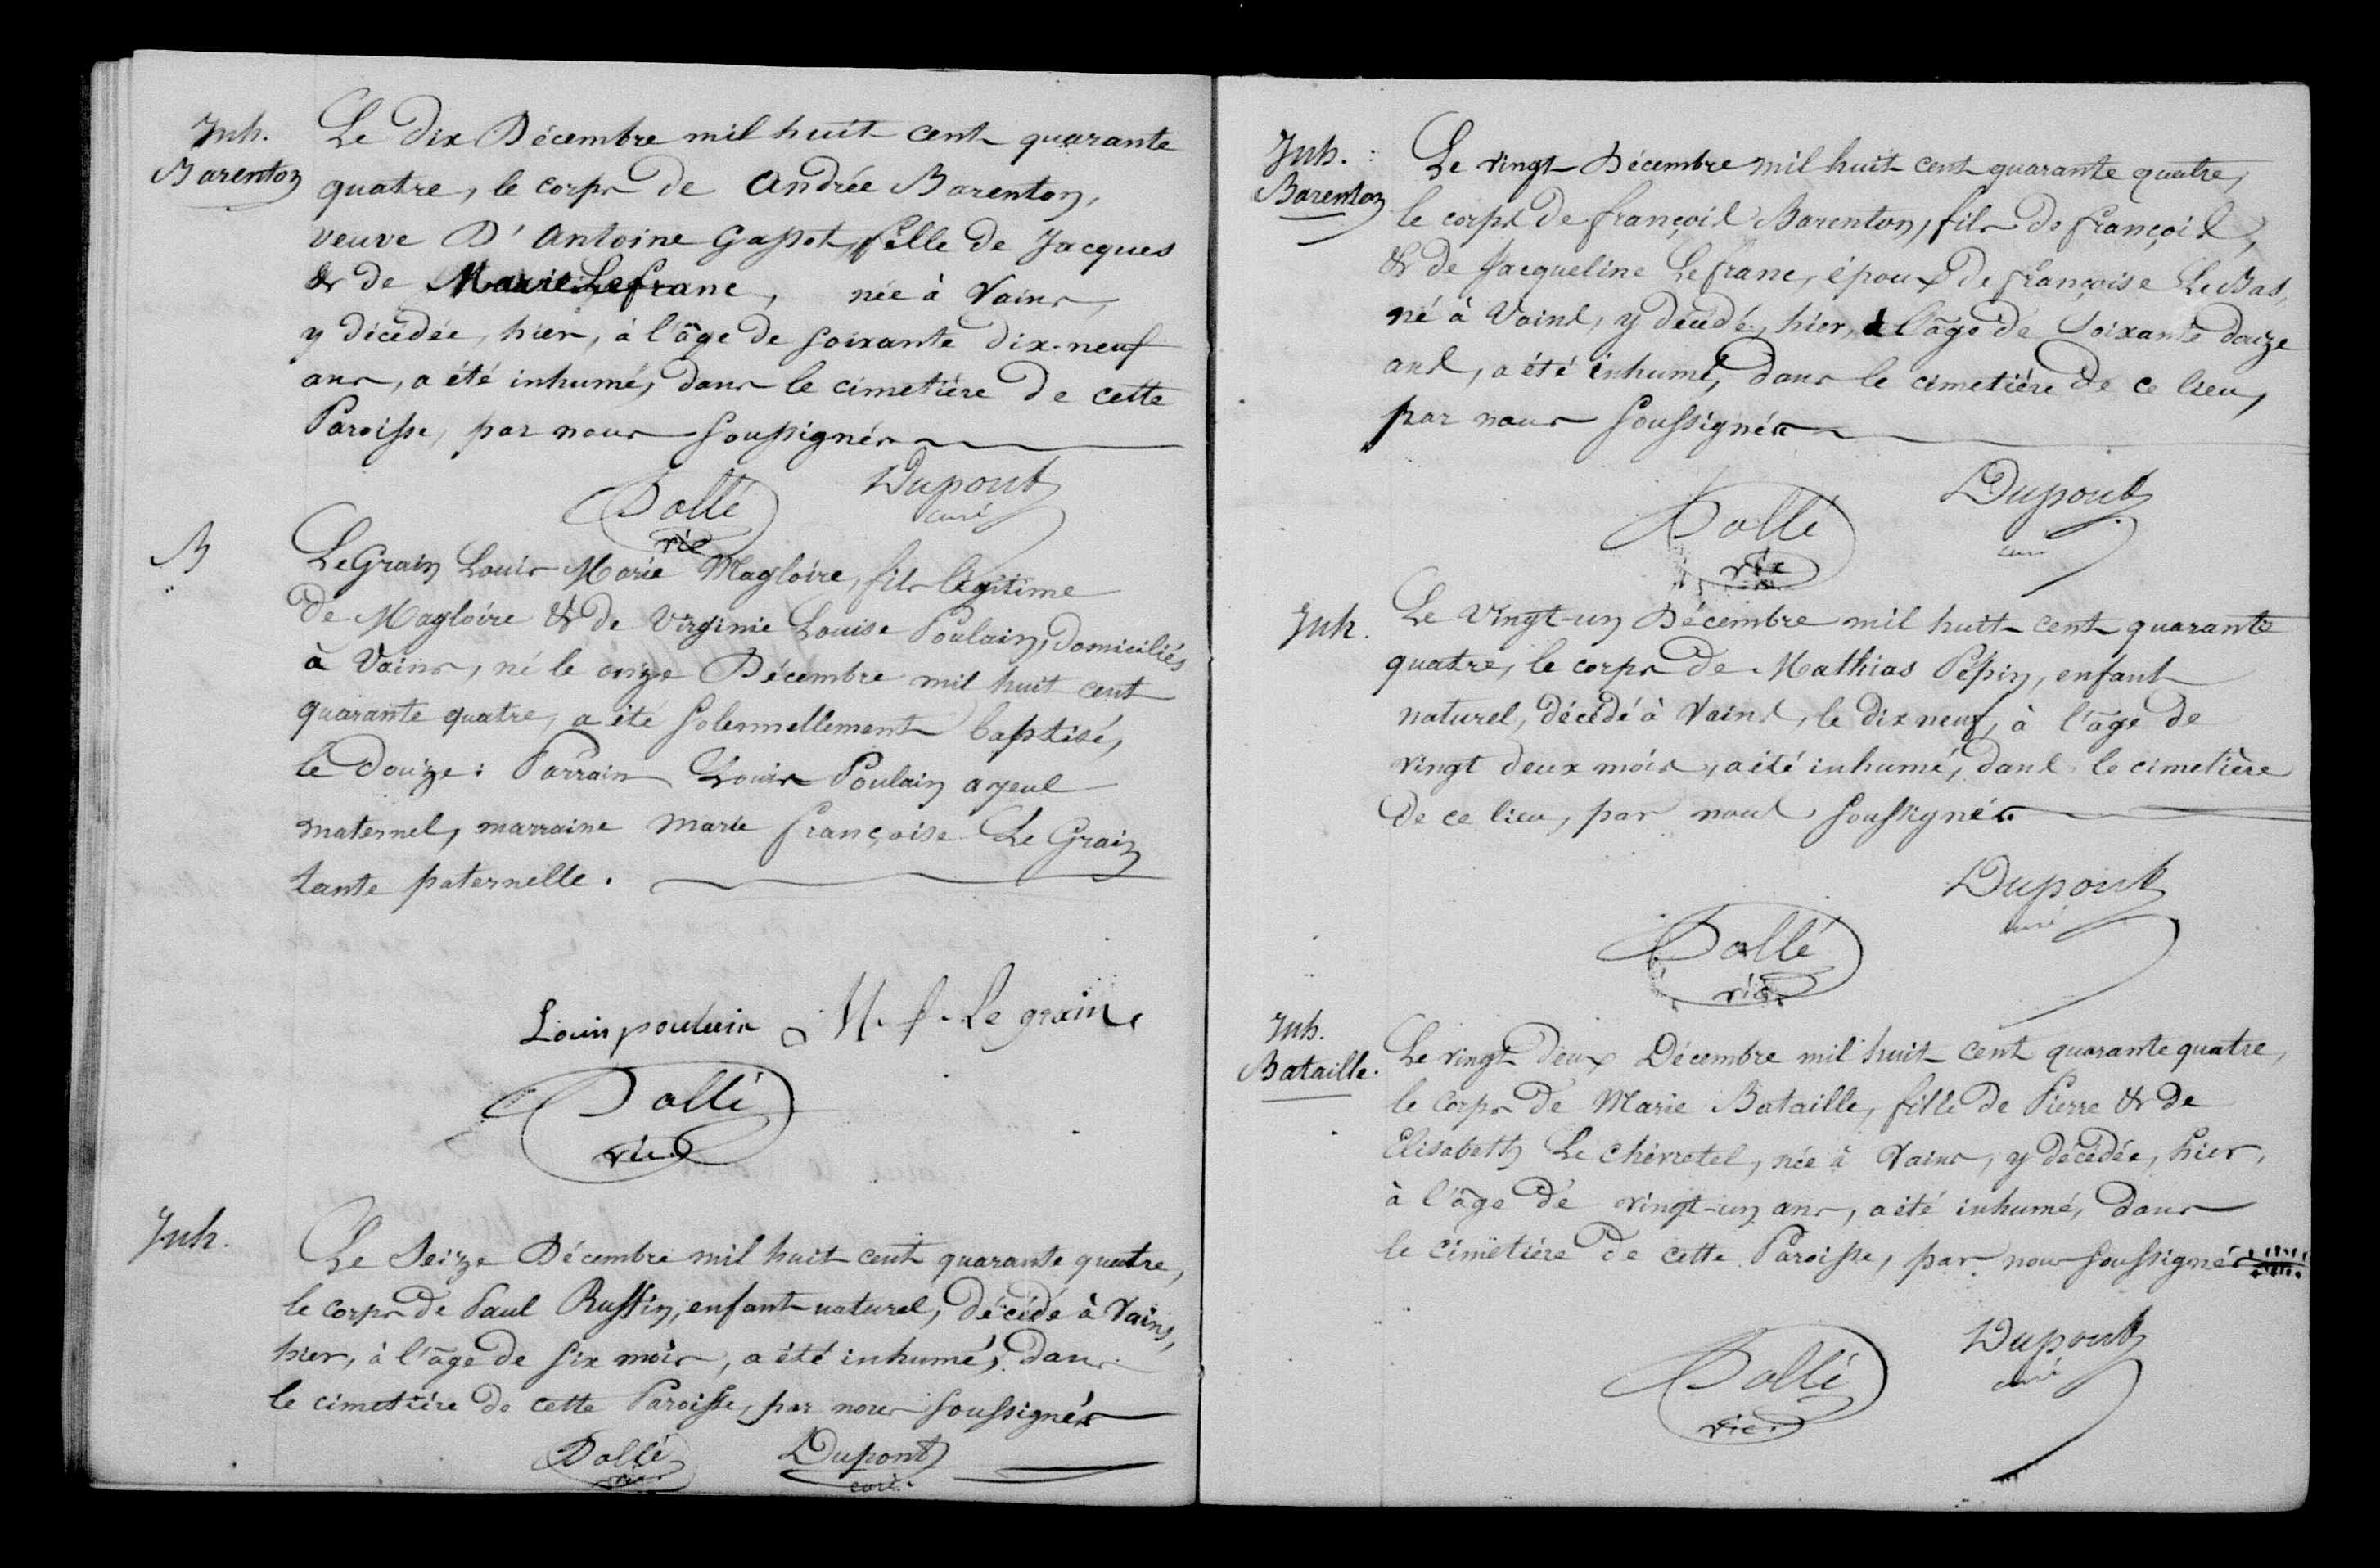 Inh.
Barenton
Le dix Décembre mil huit cent quarante
quatre, le corps de Andrée Barenton,
veuve D'Antoine Gassot, fille de Jacques
& de Marie Lefranc, née à Vains,
y décédée, hier, à l'âge de soixante dix-neuf
ans, a été inhumé, dans le cimetière de cette
Paroisse, par nous soussignés
Dollé Dupont
vic curé
B
LeGrain Louis Marie Magloire, fils légitime
de Magloire & de Virginie Louise Poulain, domiciliés
à Vains, né le onze Décembre mil huit cent
quarante quatre, a été solennellement baptisé,
le douze: Parrain Louis Poulain ayeul
maternel, marraine Marie françoise Le Grain
tante paternelle.
Louis poulain M. f. Le grain
Dollé
vic
Inh.
Le Seize Décembre mil huit cent quarante quatre,
le corps de Paul Russin, enfant naturel, décédé à Vains,
hier, à l'âge de six mois, a été inhumé, dans
le cimetière de cette Paroisse, par nous soussignés
Dollé Dupont
vic curé
Inh. :
Barenton
Le vingt Décembre mil huit cent quarante quatre,
le corps de françois Barenton, fils de françois,
& de Jacqueline Lefranc, époux de françoise LeBas,
né à Vains, y décédé, hier, à l'âge de Soixante douze
ans, a été inhumé, dans le cimetière de ce lieu,
par nous soussignés
Dollé Dupont
vic curé
Inh.
Le vingt-un Décembre mil huit cent quarante
quatre, le corps de Mathias Pépin, enfant
naturel, décédé à Vains, le dix neuf, à l'âge de
vingt deux mois, a été inhumé, dans le cimetière
de ce lieu, par nous soussignés
Dollé Dupont
vic. curé
Inh.
Bataille.
Le vingt deux Décembre mil huit cent quarante quatre,
le corps de Marie Bataille, fille de Pierre & de
Elisabeth Le Chevretel, née à Vains, y décédée, hier,
à l'âge de vingt-un ans, a été inhumé, dans
le cimetière de cette Paroisse, par nous soussignés
Dollé Dupont
vic. curé